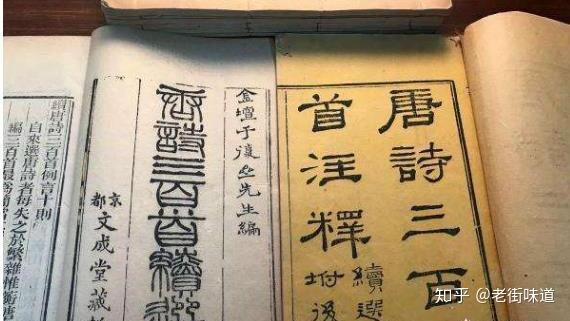 唐詩三百
首注釋
續選
坿後
金壇于復亝先生編
唐詩三百首續選
京都
文成堂藏
續唐詩三百首例言十則
自來選唐詩者每失之於繁雜惟蘅
編三百首最爲簡
知乎 @老街味道